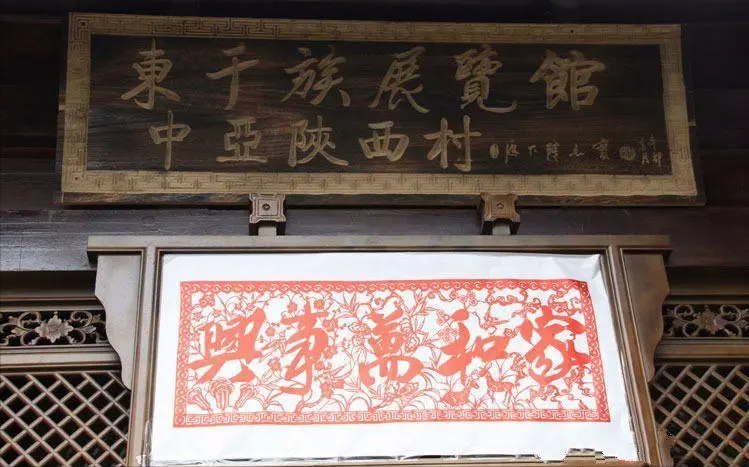 東干族展覽館
中亞陝西村
家和萬事興